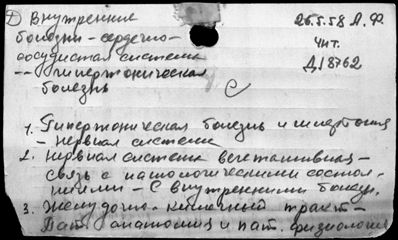 ① Внутренние
болезни - сердечно-
сосудистая система
-- гипертоническая
болезнь
26.5.58 Л.Ф
Чит.
Д18762
С
1. Гипертоническая болезнь и гипертония
- нервная система
2. Нервная система вегетативная -
связь с патологическими состоя-
ниями - с внутренними болезн.
3. Желудочно-кишечный тракт -
Пат. анатомия и пат. физиология